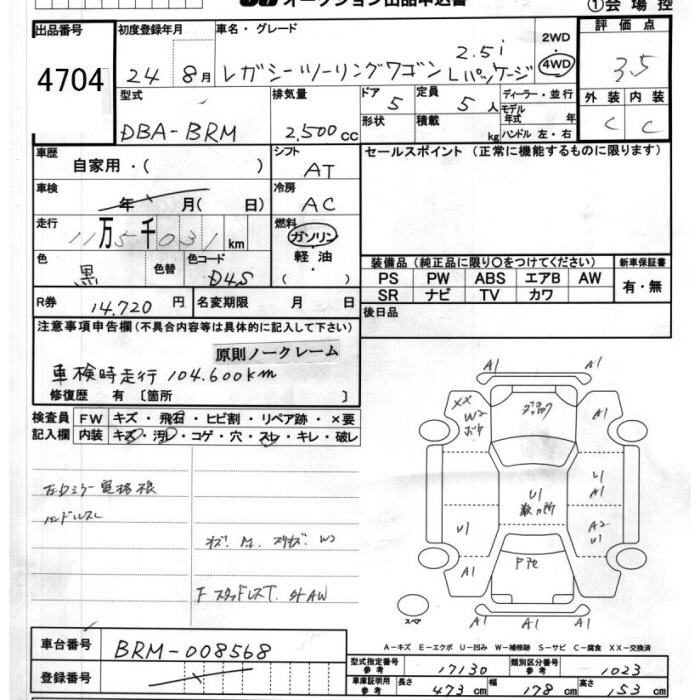 オークション出品申込書
①会場控
出品番号
4704
初度登録年月
24年 8月
車名・グレード
レガシーツーリングワゴン 2.5i Lパッケージ
2WD
4WD
評価点
3.5
型式
DBA-BRM
排気量
2,500cc
ドア 5
定員 5人
形状
積載 kg
ディーラー・並行
モデル年式 年
ハンドル 左・右
外装 内装
C C
車歴
自家用・( )
シフト
AT
セールスポイント(正常に機能するものに限ります)
車検
年 月( 日)
冷房
AC
走行
11万5千031km
燃料
ガソリン
軽油
・
( )
色
黒
色替
色コード
D4S
装備品(純正品に限り○をつけてください)
PS PW ABS エアB AW
SR ナビ TV カワ
新車保証書
有・無
R券 14,720円
名変期限 月 日
後日品
注意事項申告欄(不具合内容等は具体的に記入して下さい)
原則ノークレーム
車検時走行 104.600km
修復歴 有〔箇所 〕
検査員記入欄
FW キズ・飛石・ヒビ割・リペア跡・×要
内装 キズ・汚レ・コゲ・穴・スレ・キレ・破レ
ハンドルスレ
F スタッドレスT. 社外AW
A1 A1
XX
W2
A1
U1
A1
U1
U1
A2
U1
A1
A1
A1 A1
スペア
A-キズ E-エクボ U-凹み W-補修跡 S-サビ C-腐食 XX-交換済
車台番号
BRM-008568
登録番号
型式指定番号 参考 17130
類別区分番号 参考 1023
車庫証明用 参考 長さ 473cm 幅 178cm 高さ 153cm